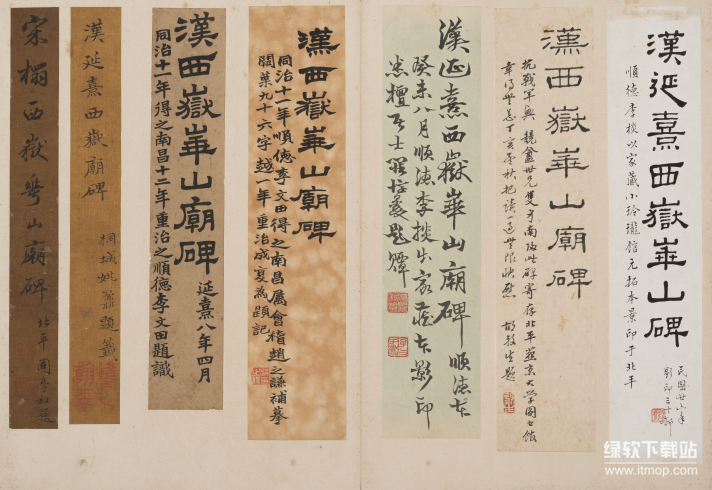 漢延熹西嶽華山碑
順德李棪以家藏小玲瓏館元拓本景印于北平
民國廿六年
影印三十部
漢西嶽華山廟碑
抗戰軍興
此碑寄存北平燕京大學圖書館
漢延熹西嶽華山廟碑
順德
癸未八月順德李棪出家藏本影印
漢西嶽華山廟碑
同治十一年順德李文田得之南昌屬會稽趙之謙補摹
闕葉九十六字越一年重治成夏為題記
漢西嶽華山廟碑
延熹八年四月
同治十一年得之南昌十二年重治之順德李文田題識
漢延熹西嶽廟碑
桐城姚鼐題籤
宋搨西嶽華山廟碑
北平
绿软下载站
www.itmop.com